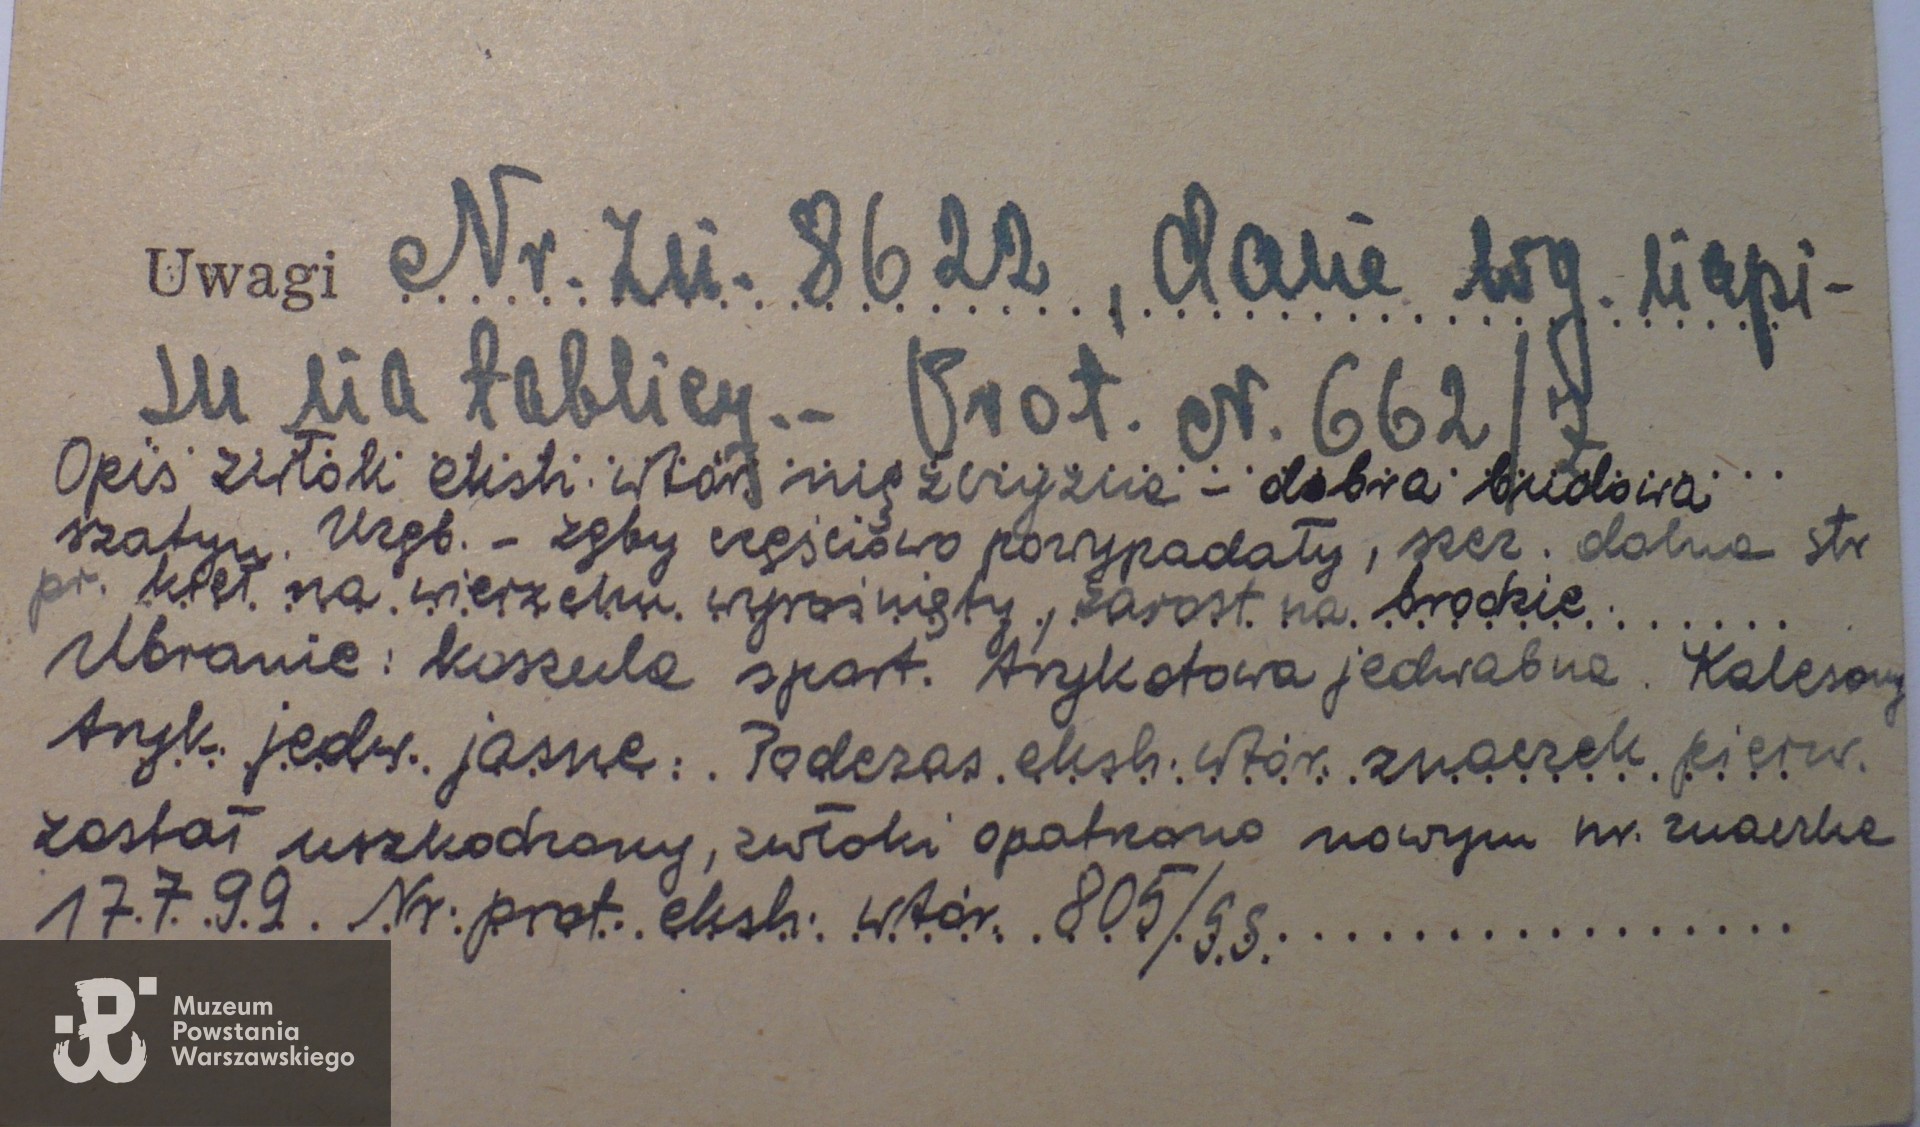 Uwagi Nr. zn. 8622, dane wg. napi-
su na tablicy.- Prot. N. 662/I
Opis zwłok eksh. wtór. mężczyzna - dobra budowa
szatyn. Uzęb. - zęby częściowo powypadały, szcz. dolna str
pr. kieł na wierzchu wyrośnięty, zarost na brodzie.
Ubranie: koszula sport. trykotowa jedwabna. Kalesony
tryk. jedw. jasne. Podczas eksh. wtór. znaczek pierw.
został uszkodzony, zwłoki opatrzono nowym nr. znaczka
17.7.99. Nr. prot. eksh. wtór. 805/
Muzeum
Powstania
Warszawskiego